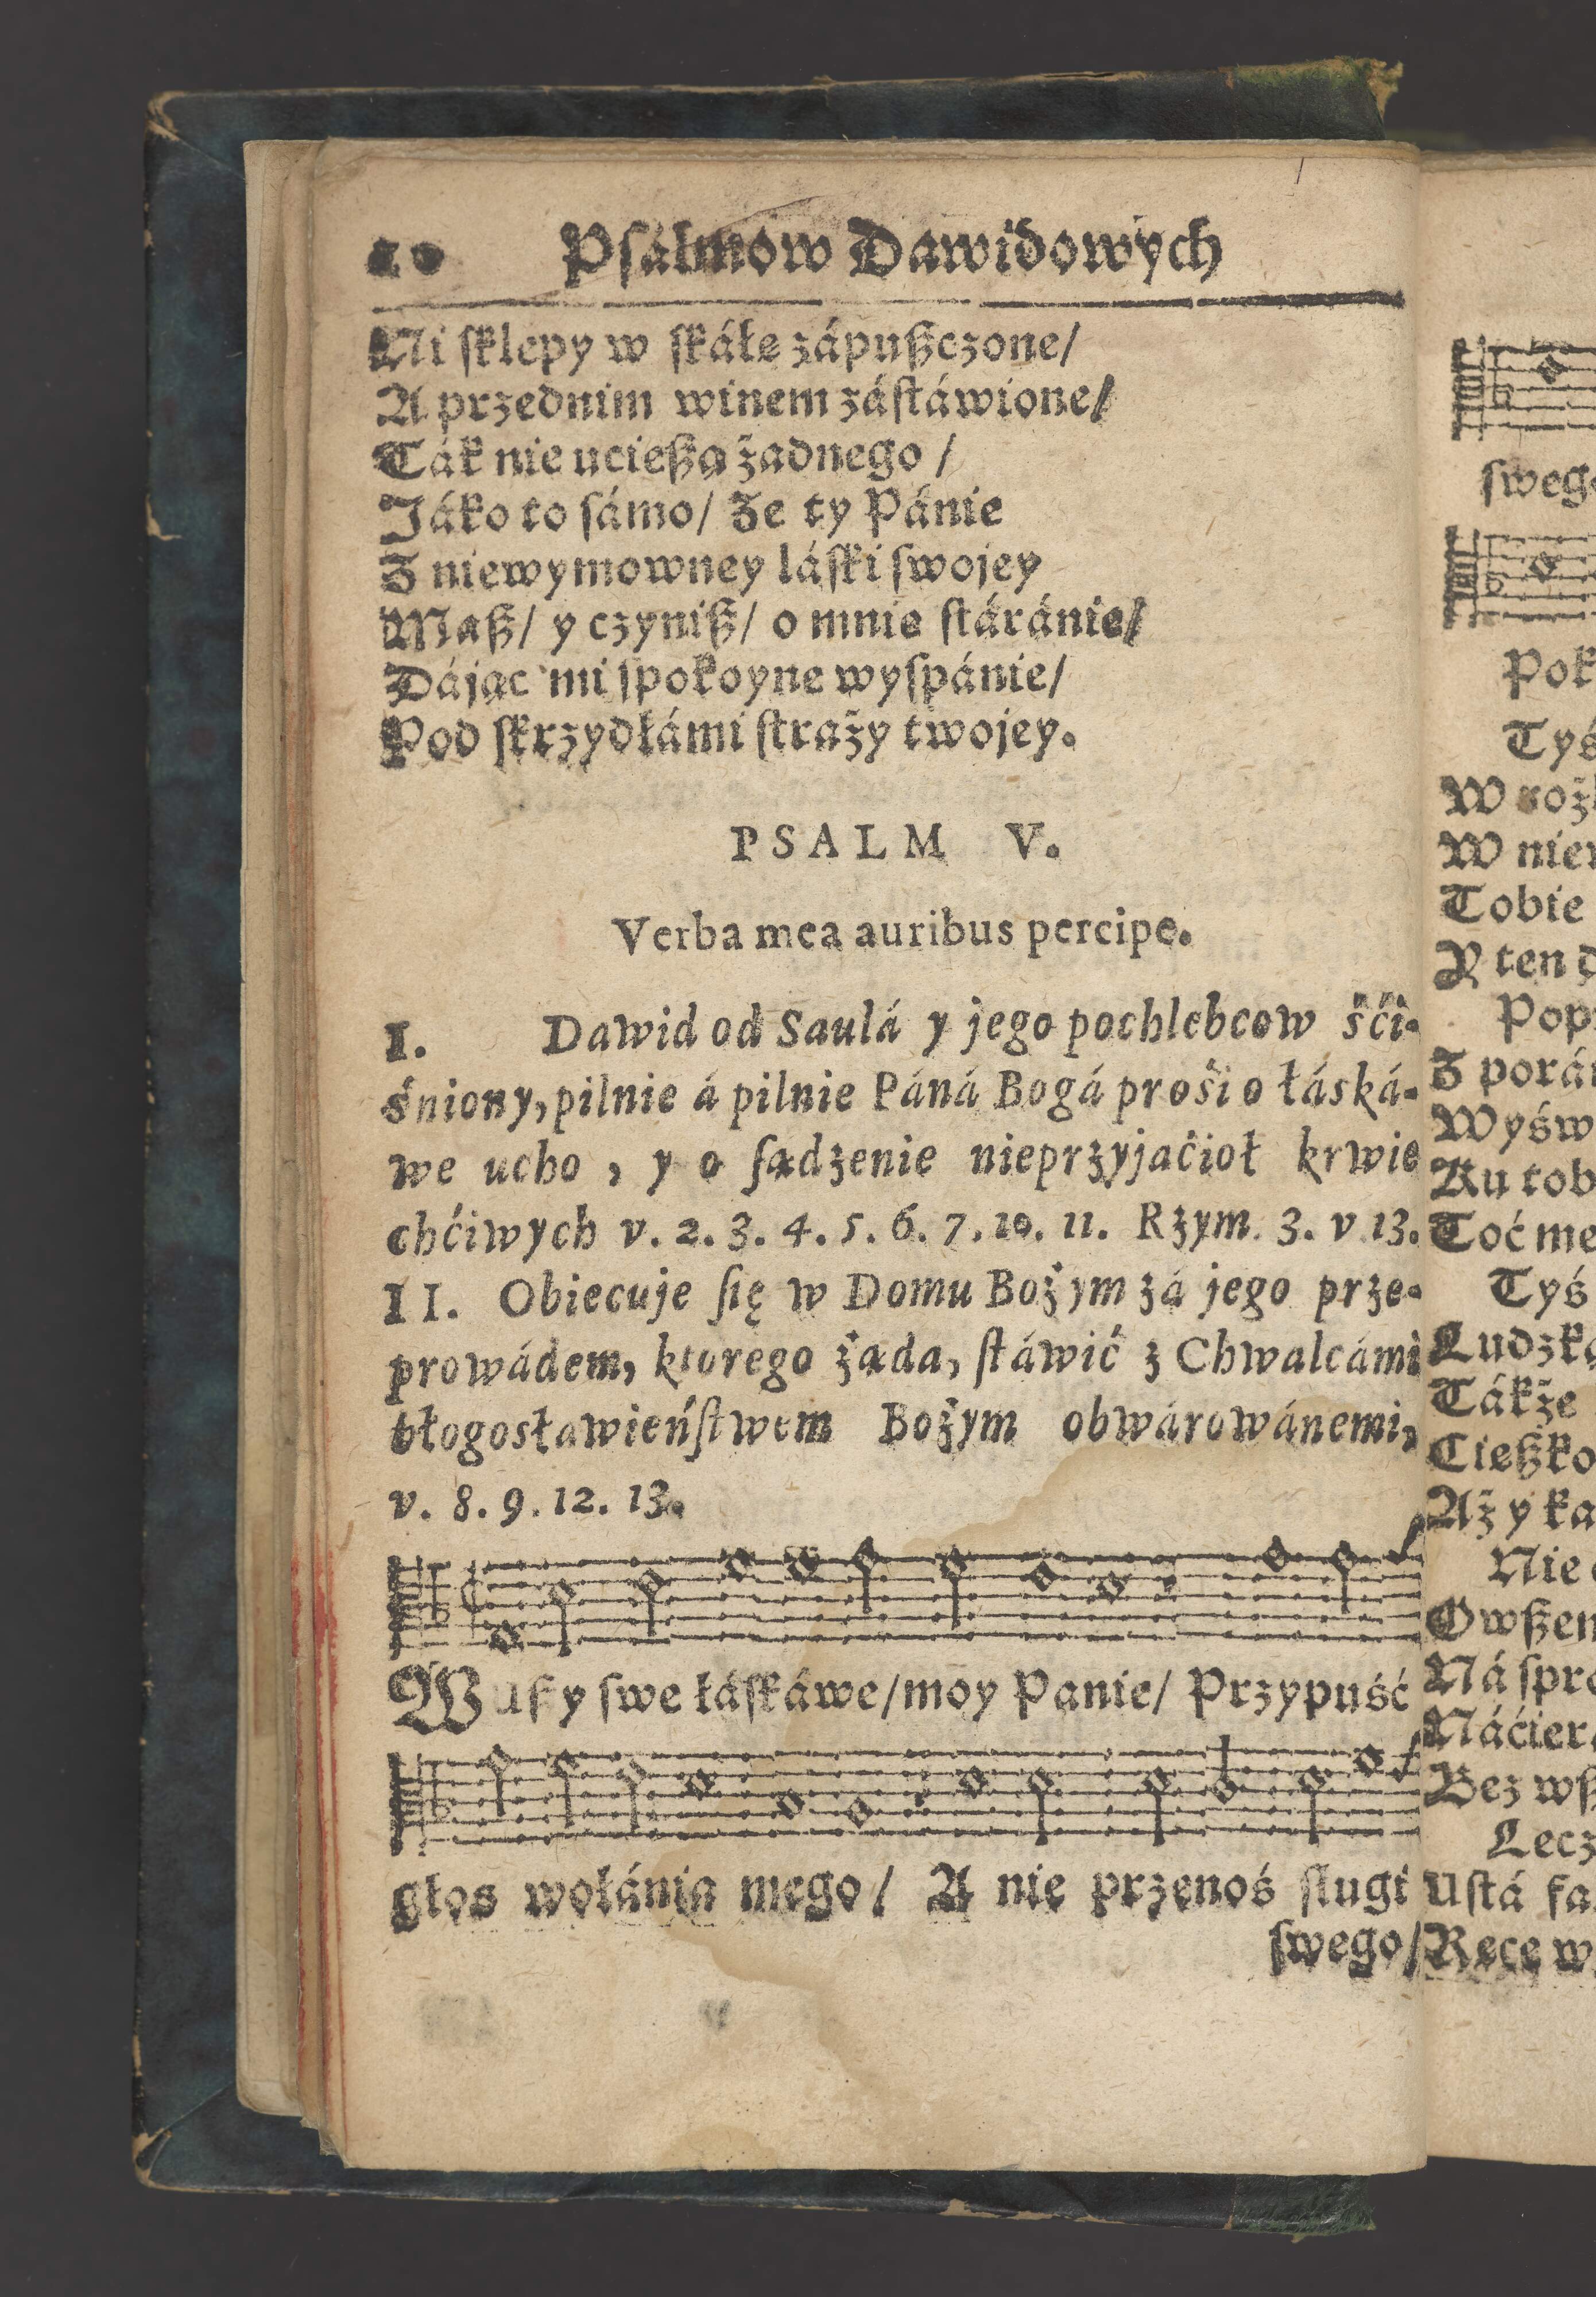 10 Psalmow Dawidowych
Ni sklepy w skále zápuszczone/
A przednim winem zástáwione/
Ták nie ucieszą żadnego /
Jáko to sámo/ Że ty Pánie
Z niewymowney láski swojey
Masz/ y czynisz/ o mnie stáránie/
Dając mi spokoyne wyspánie/
Pod skrzydłámi straży twojey.
PSALM V.
Verba mea auribus percipe.
I. Dawid od Saulá y jego pochlebcow śći-
śniony, pilnie á pilnie Páná Bogá prośi o łáská-
we ucho, y o sądzenie nieprzyjaćioł krwie
chćiwych v. 2. 3. 4. 5. 6. 7. 10. 11. Rzym. 3. v 13.
II. Obiecuje się w Domu Bożym zá jego prze-
prowádem, ktorego żąda, stáwić z Chwalcámi
błogosławieństwem Bożym obwárowánemi,
v. 8. 9. 12. 13.
W uszy swe łáskáwe/moy Panie/ Przypuść
głos wołánia mego/ A nie przenoś slugi
swego/
sweg
Pok
Tyś
W
W nie
Tobie
Y ten
Pop
Z porá
Wyśw
Ku tob
Toć me
Tyś
Ludzk
Tákże
Cieszko
Aż y ka
Nie
Owszem
Ná spr
Náćier
Bez wsz
Lecz
Ustá fa
Ręce w